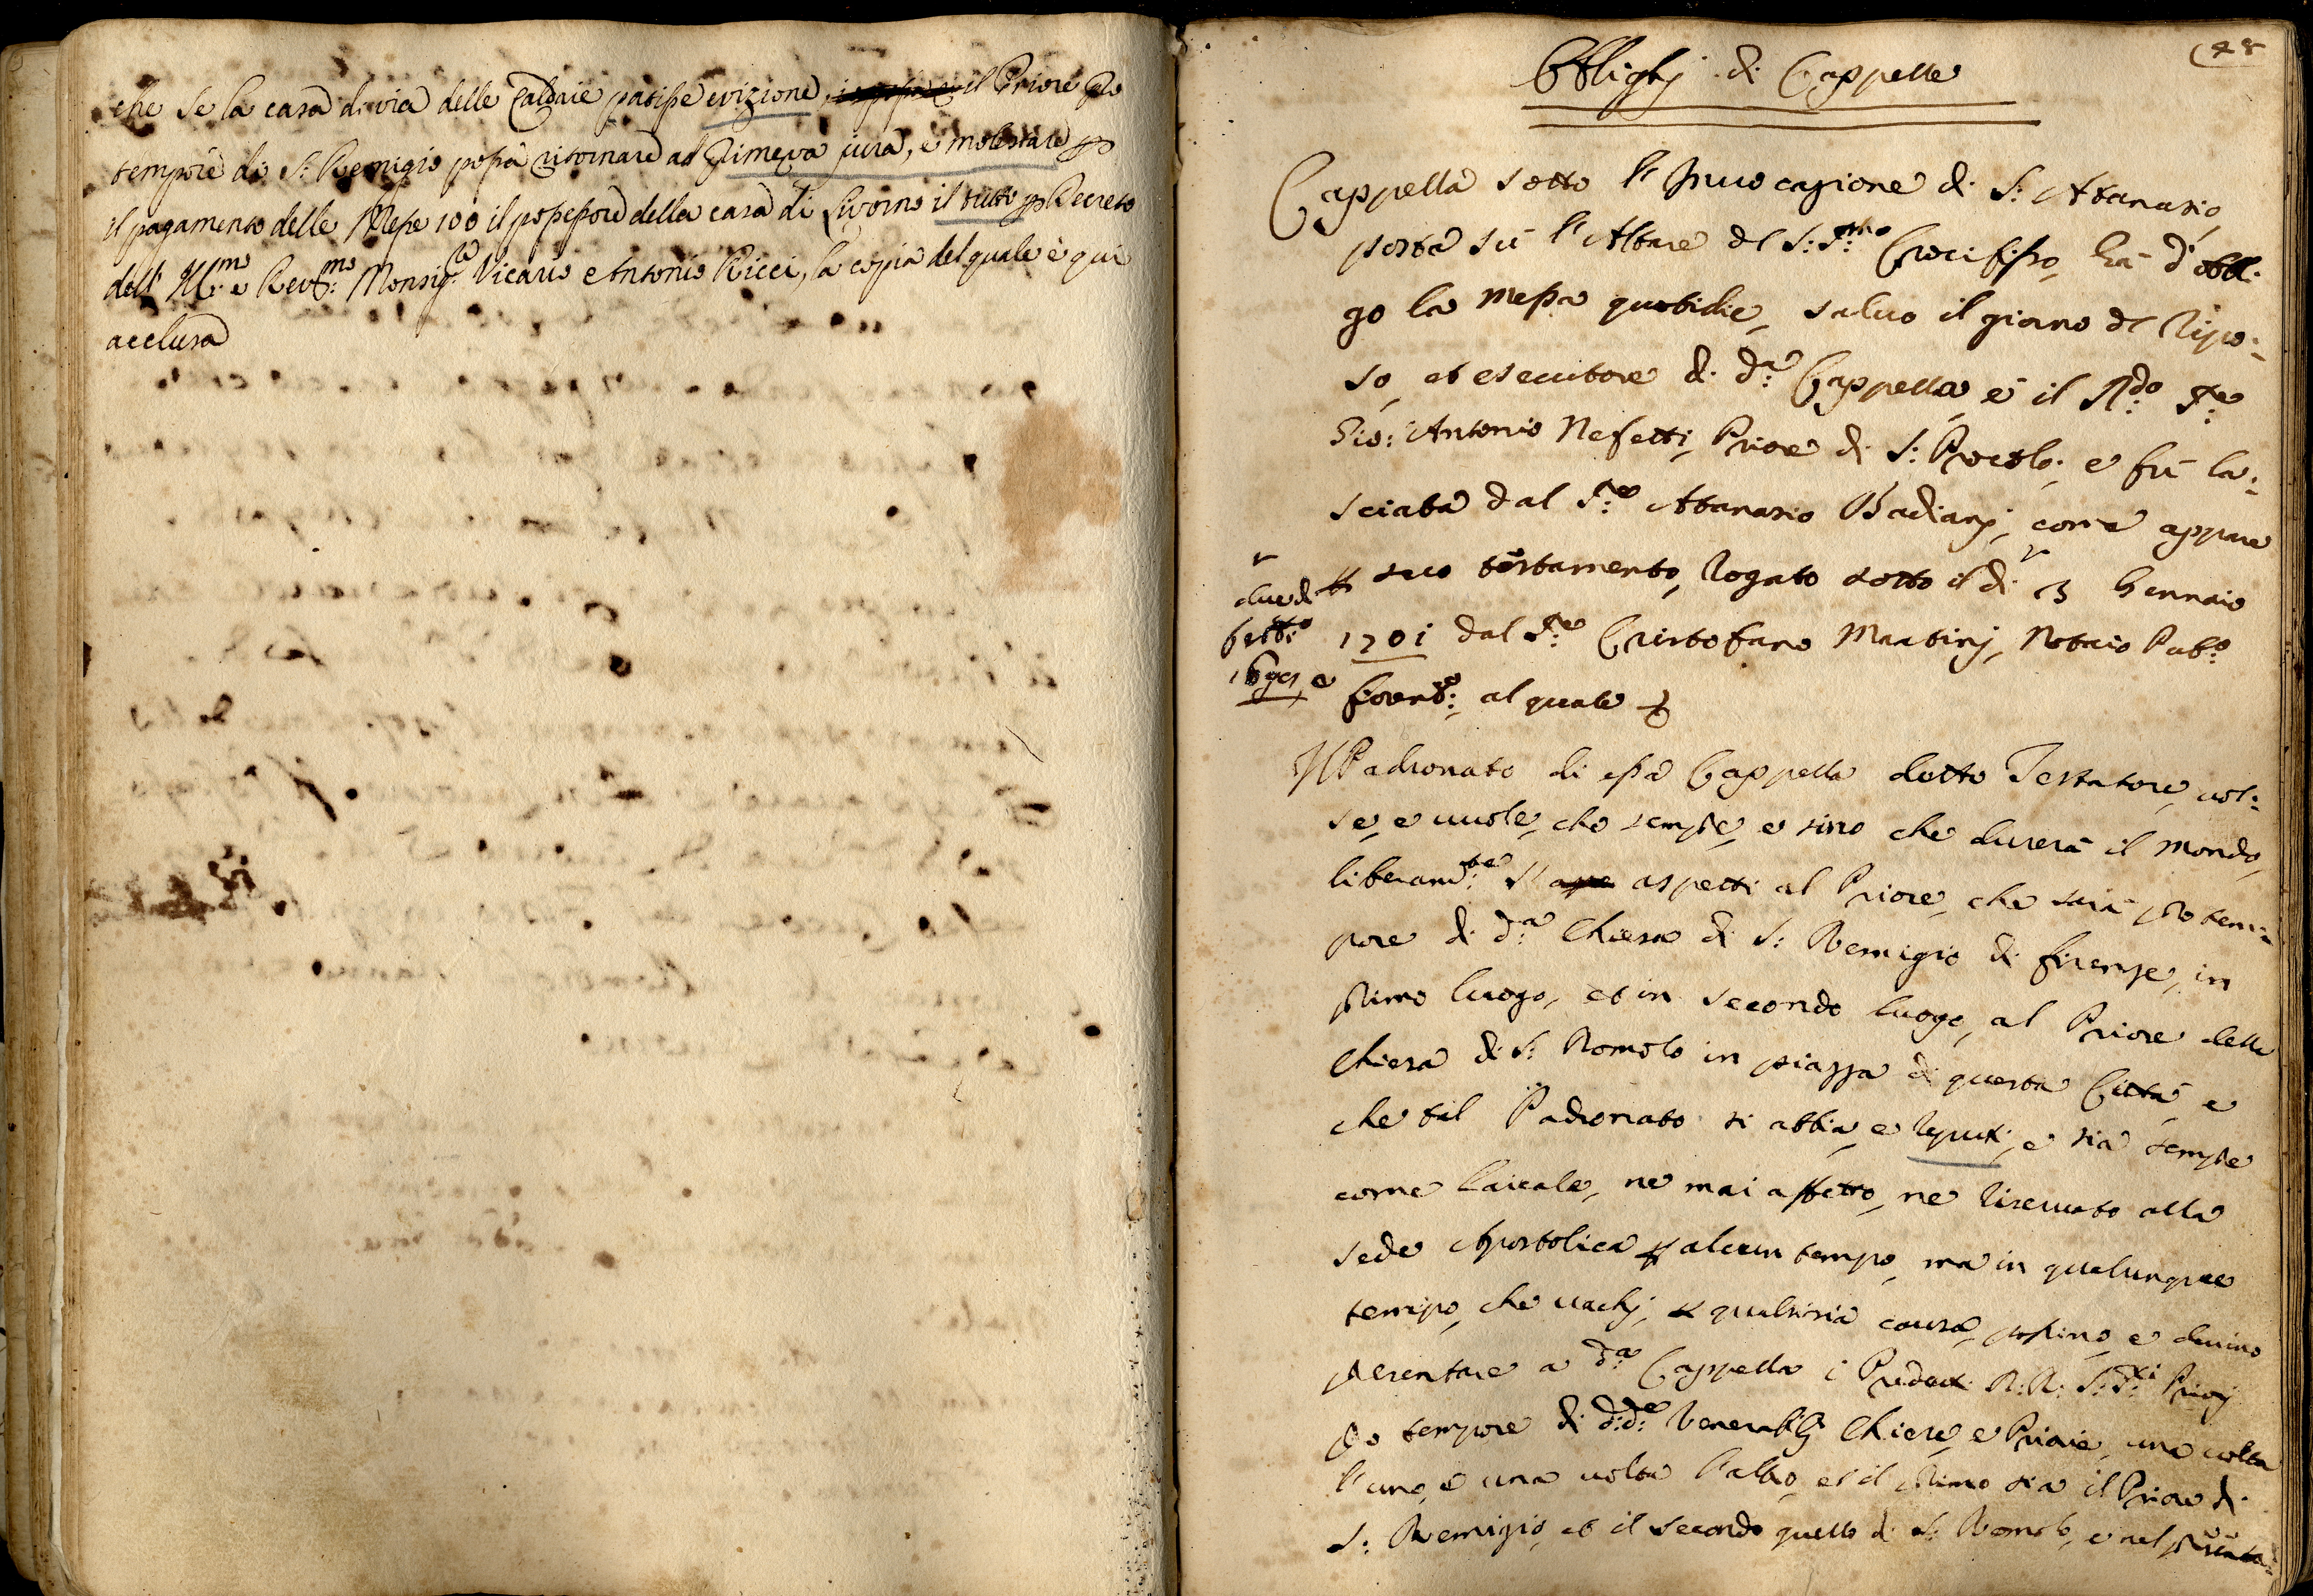 che se la casa di via delle Caldaie patisse evizione, il Priore pro
tempore di S: Remigio possa ritornare ad primeva jura, e molestare per
il pagamento delle Messe 100 il possessore della casa di Livorno il tutto per Decreto
dell' Ill:mo e Rev:mo Monsig:re Vicario Antonio Ricci, la copia del quale è qui
acclusa
48
Obblighj di Cappelle
Cappella sotto l'Invocazione di S: Atanasio,
posta sù l'Altare del S:S:mo Crocifisso, hà d'obbli:
go la Messa quotidie, salvo il giorno del Ripo:
so, et esecutore di d:a Cappella è il R:do S:re
Gio: Antonio Nefetti, Priore di S: Procolo, e fù la:
sciata dal S:re Atanasio Badianj, come appare
per suo testamento, Rogato sotto il dì 13 Gennaio
due di
febb:o
1701 dal S:re Cristofano Martinj, Notaio Pub:o
fiorent:o, al quale
Il Padronato di essa Cappella detto Testatore, vol:
se, e vuole, che sempre, e sino che durerà il mondo,
liberam:te s'aspetti al Priore, che sarà pro tem:
pore di d:a Chiesa di S: Remigio di firenze, in
primo luogo, et in secondo luogo, al Priore della
Chiesa di S: Romolo in piazza di questa Città, e
che tal Padronato si abbia, e reputi, e sia sempre
come Laicale, ne mai affetto, ne riservato alla
sede Apostolica per alcun tempo, ma in qualunque
tempo, che vachj, per qualsisia causa, possino, e devino
presentare a d:a Cappella i Predetti R:R: S:S:ri Priorj
pro tempore di d:d:e Venerabili Chiese, e Priorie, una volta
l'uno, e una volta l'altro, et il primo sia il Priore di
S: Remigio, et il secondo quello di S: Romolo, e nel